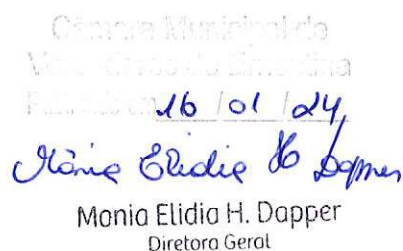 Câmara Municipal de
16 / 01 / 24
Mônia Elidia H Dapper
Monia Elidia H. Dapper
Diretora Geral